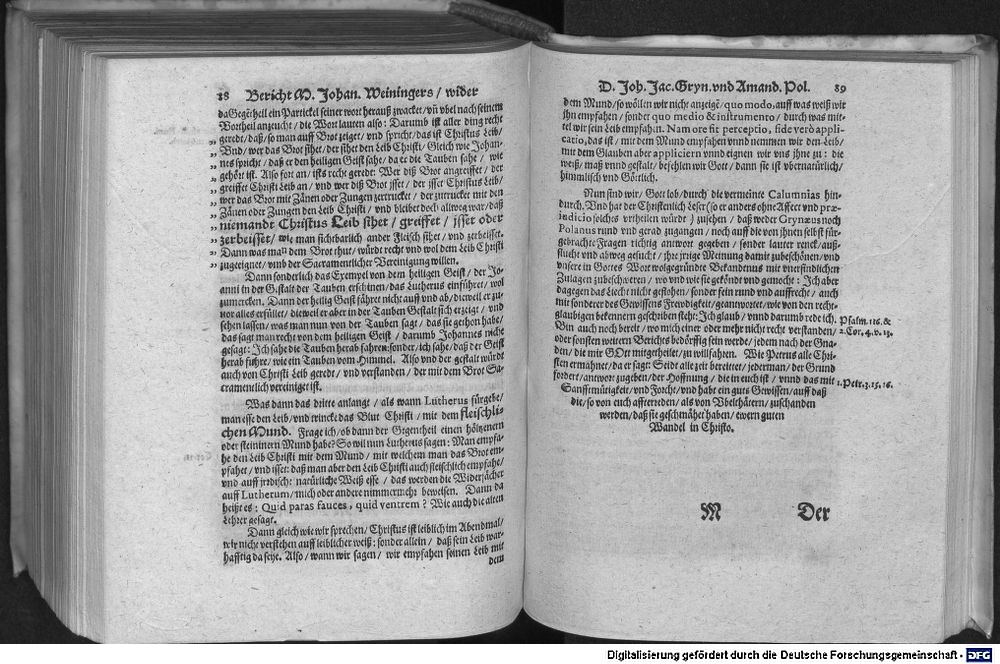 88 Bericht M. Johan. Weiningers / wider
da Gegētheil ein Partickel seiner wort herauß zwacket / vñ vbel nach seinem
Vortheil anzeucht / die Wort lauten also: Darumb ist aller ding recht
„ geredt / daß / so man auff Brot zeiget / vnd spricht / das ist Christus Leib /
„ Vnd / wer das Brot sihet / der sihet den Leib Christi / Gleich wie Johan-
„ nes spricht / daß er den heiligen Geist sahe / da er die Tauben sahe / wie
„ gehört ist. Also fort an / ists recht geredt: Wer diß Brot angreiffet / der
„ greiffet Christi Leib an / vnd wer diß Brot isset / der isset Christus Leib /
„ wer das Brot mit Zänen oder Zungen zertrucket / der zutrucket mit den
„ Zänen oder Zungen den Leib Christi / vnd bleibet doch allweg war / daß
„ niemandt Christus Leib sihet / greiffet / isset oder
„ zerbeisset / wie man sichtbarlich ander Fleisch sihet / vnd zerbeisset.
„ Dann was man dem Brot thut / würdt recht vnd wol dem Leib Christi
„ zugeeignet / vmb der Sacramentlicher Vereinigung willen.
Dann sonderlich das Exempel von dem heiligen Geist / der Jo-
anni in der Gestalt der Tauben erschinen / das Lutherus einführet / wol
zumercken. Dann der heilig Geist fähret nicht auff vnd ab / dieweil er zu-
uor alles erfüllet / dieweil er aber in der Tauben Gestalt sich erzeigt / vnd
sehen lassen / was man nun von der Tauben sagt / das sie gethon habe /
das sagt man recht von dem heiligen Geist / darumb Johannes nicht
gesagt: Ich sahe die Tauben herab fahren: sonder / ich sahe / daß der Geist
herab führe / wie ein Tauben vom Himmel. Also vnd der gestalt würdt
auch von Christi Leib geredt / vnd verstanden / der mit dem Brot Sa-
cramentlich vereiniget ist.
Was dann das dritte anlangt / als wann Lutherus fürgebe /
man esse den Leib / vnd trincke das Blut Christi / mit dem fleischli-
chen Mund. Frage ich / ob dann der Gegentheil einen höltzenern
oder steininern Mund habe? So wil nun Lutherus sagen: Man empfa-
he den Leib Christi mit dem Mund / mit welchem man das Brot em-
pfahet / vnd isset: daß man aber den Leib Christi auch fleischlich empfahe /
vnd auff jrdische natürliche Weiß esse / das werden die Widersächer
auff Lutherum / mich oder andere nimmermehr beweisen. Dann da
heißt es: Quid paras fauces, quid ventrem? Wie auch die alten
Lehrer gesagt.
Dann gleich wie wir sprechen / Christus ist leiblich im Abendmal /
wir nicht verstehen auff leiblicher weiß: sonder allein / daß sein Leib war-
hafftig da seye. Also / wann wir sagen / wir empfahen seinen Leib mit
dem
D. Joh. Jac. Gryn. vnd Amand. Pol. 89
dem Mund / so wöllen wir nicht anzeigē / quo modo, auff was weiß wir
ihn empfahen / sonder quo medio & instrumento / durch was mit-
tel wir sein Leib empfahen. Nam ore fit perceptio, fide verò appli-
catio, das ist / mit dem Mund empfahen vnnd nemmen wir den Leib /
mit dem Glauben aber appliciern vnnd eignen wir vns jhne zu: die
weiß / maß vnnd gestalt / befehlen wir Gott / dann sie ist vbernatürlich /
himmlisch vnd Göttlich.
Nun sind wir / Gott lob / durch die vermeinte Calumnias hin-
durch. Vnd hat der Christenlich Leser (so er anders ohne Affect vnd præ-
iudicio solches vrtheilen würdt) zusehen / daß weder Grynæus noch
Polanus rund vnd gerad zugangen / noch auff die von ihnen selbst für-
gebrachte Fragen richtig antwort gegeben / sonder lauter renck / auß-
flucht vnd abweg gesucht / ihre jrrige Meinung damit zubeschönen / vnd
vnsere in Gottes Wort wolgegründte Bekandtnus mit vnerfindlichen
Zulagen zubeschweren / wo vnd wie sie gekönbt vnd gemocht: Ich aber
dagegen das Liecht nicht geflohen / sonder fein rund vnd auffrecht / auch
mit sonderer des Gewissens Frewdigkeit / geantwortet / wie von den recht-
glaubigen bekennern geschriben steht: Ich glaub / vnnd darumb rede ich.
Psalm. 116. &
2. Cor. 4. v. 13.
Bin auch noch bereit / wo mich einer oder mehr nicht recht verstanden /
oder sonsten weitern Berichts bedörfftig sein werde / jedem nach der Gna-
den / die mir GOtt mitgetheilet / zu willfahren. Wie Petrus alle Chri-
sten ermahnet / da er sagt: Seidt alle zeit bereittet / jederman / der Grund
fordert / antwort zugeben / der Hoffnung / die in euch ist / vnnd das mit
1. Petr. 3. 15. 16.
Sanfftmütigkeit / vnd Forcht / vnd habt ein guts Gewissen / auff daß
die / so von euch affterreden / als von Vbelthätern / zuschanden
werden / daß sie geschmähet haben / ewern guten
Wandel in Christo.
M Der
Digitalisierung gefördert durch die Deutsche Forschungsgemeinschaft - DFG